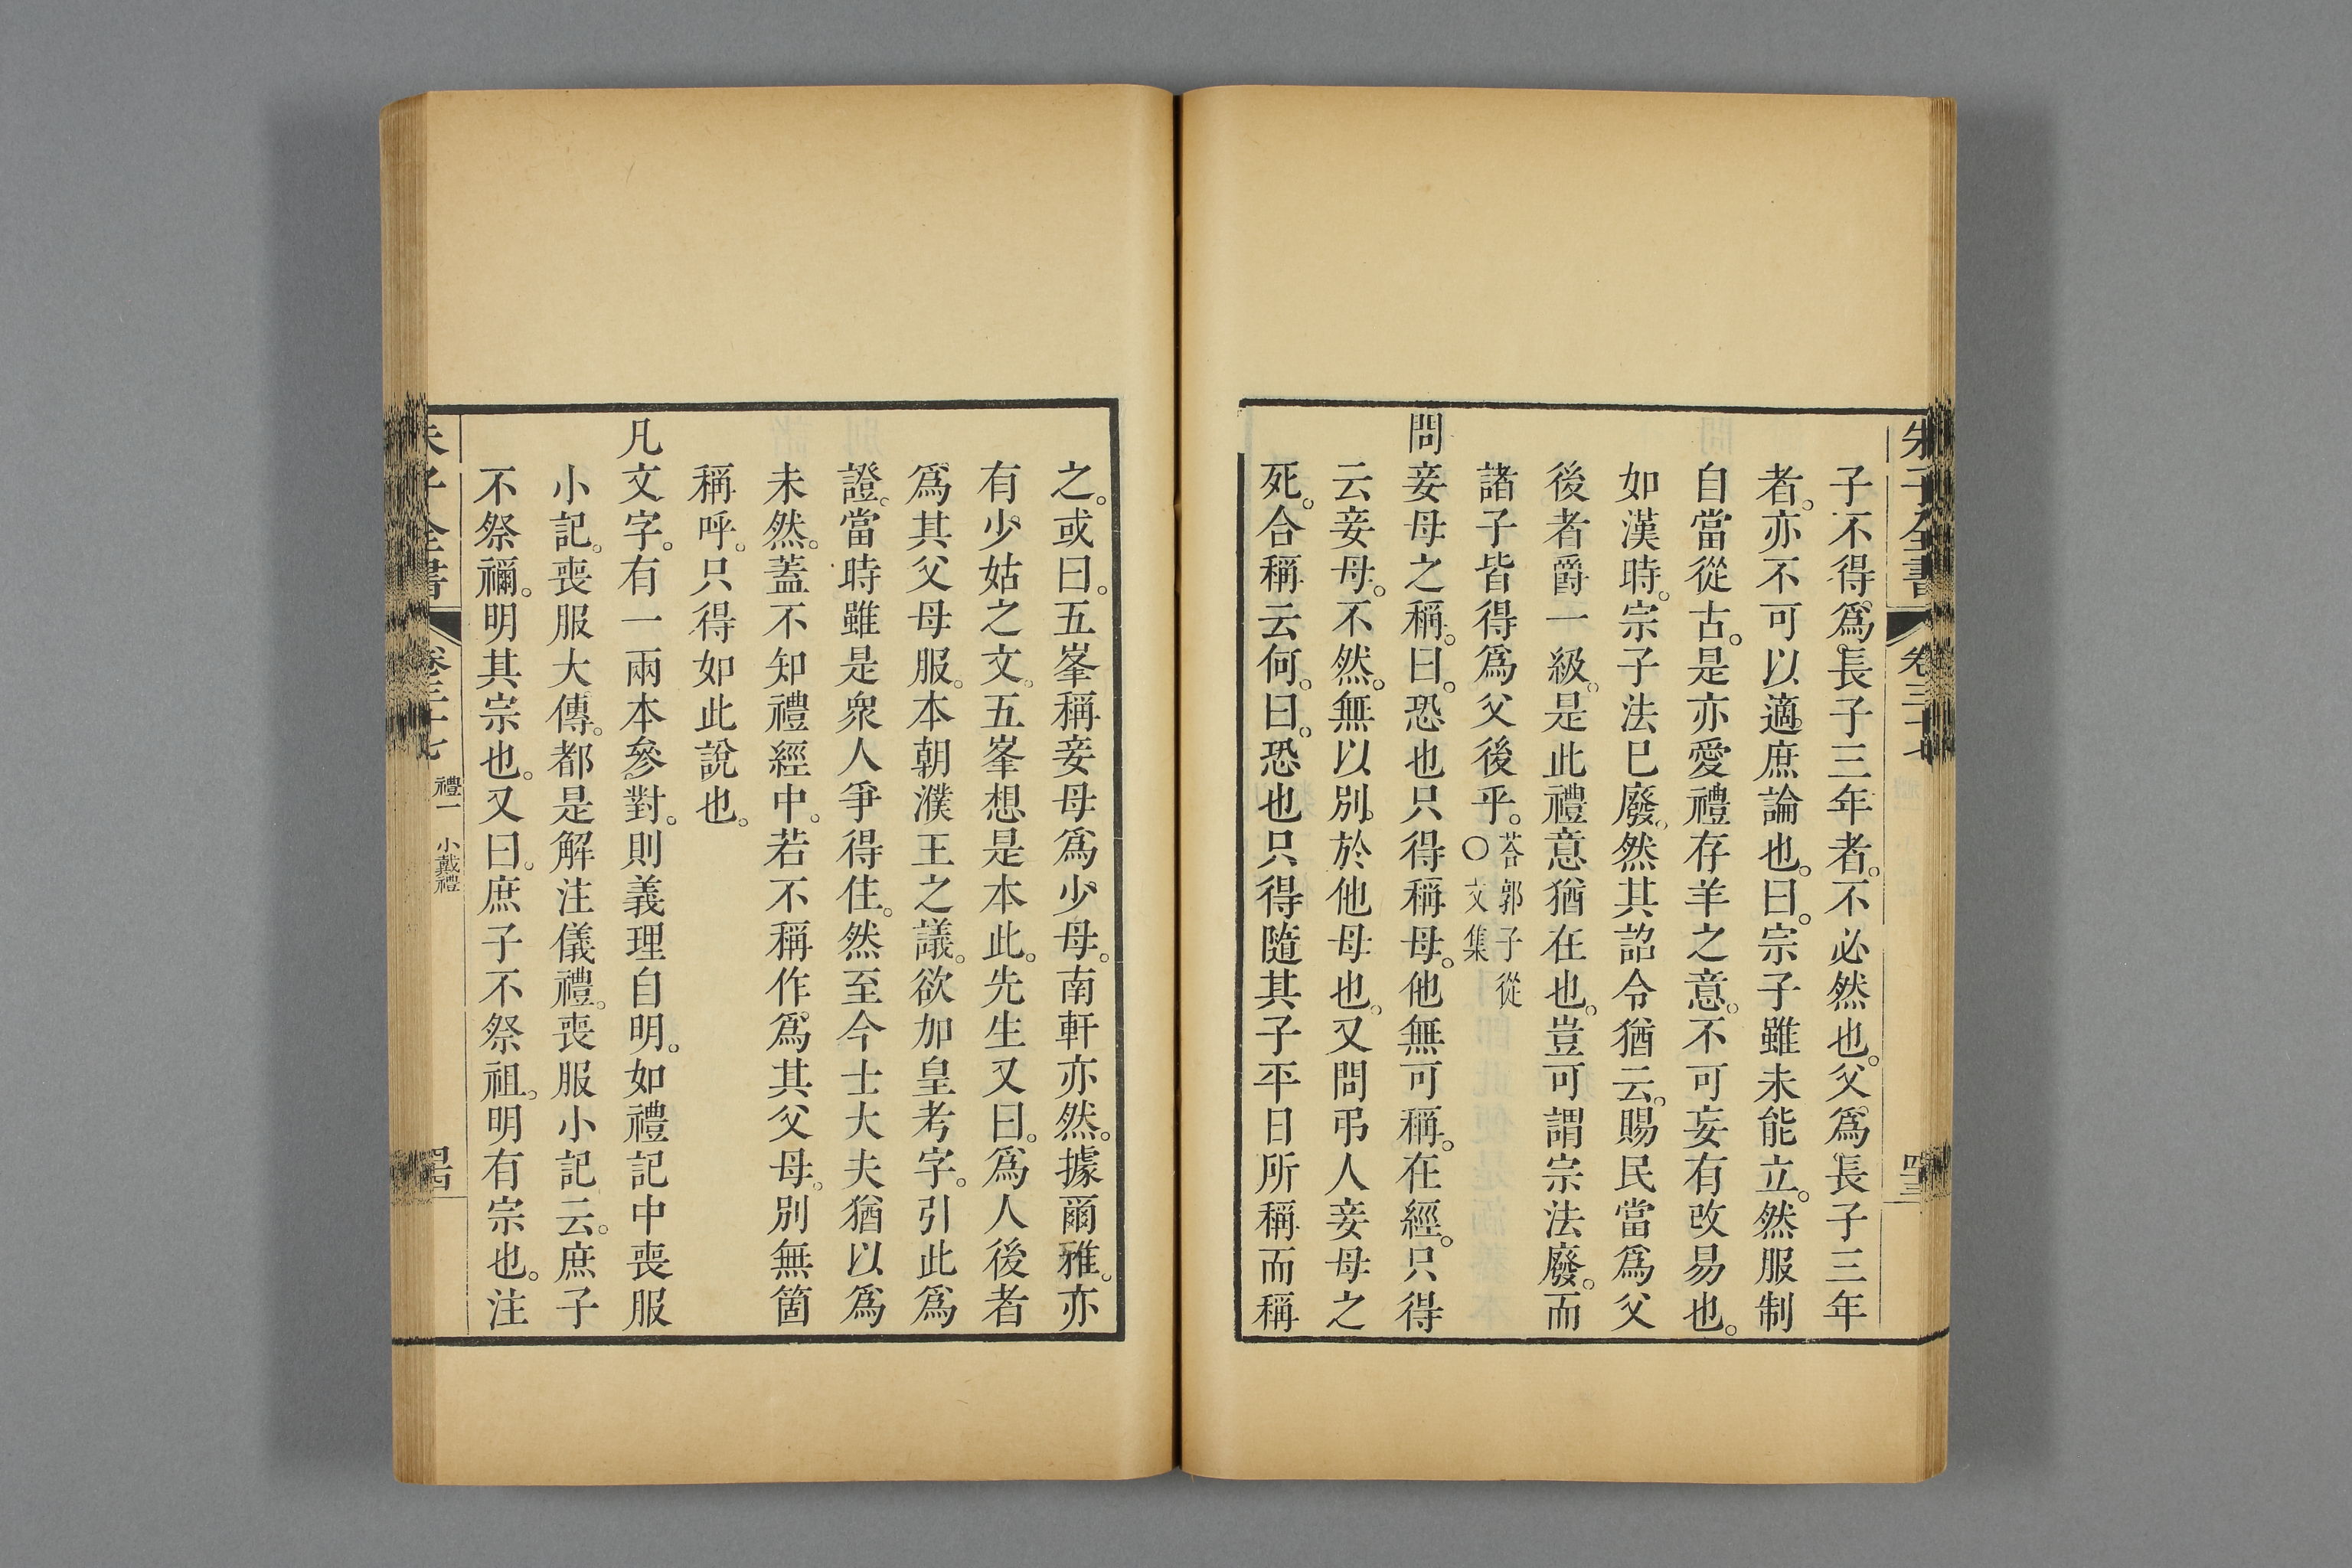 朱子全書 卷三十七 四三
子不得爲。長子三年者。不必然也。父爲長子三年
者。亦不可以適庶論也。曰。宗子雖未能立。然服制
自當從古。是亦愛禮存羊之意。不可妄有改易也。
如漢時。宗子法巳廢。然其詔令猶云。賜民當爲父
後者爵一級。是此禮意猶在也。豈可謂宗法廢。而
諸子皆得爲父後乎。荅郭子從〇文集
問妾母之稱。曰。恐也只得稱母。他無可稱。在經。只得
云妾母。不然。無以別於他母也。又問弔人妾母之
死。合稱云何。曰。恐也只得隨其子平日所稱而稱
之。或曰。五峯稱妾母爲少母。南軒亦然。據爾雅。亦
有少姑之文。五峯想是本此。先生又曰。爲人後者
爲其父母服。本朝濮王之議。欲加皇考字。引此爲
證。當時雖是衆人爭得住。然至今士大夫猶以爲
未然。蓋不知禮經中。若不稱作爲其父母。別無箇
稱呼。只得如此說也。
凡文字。有一兩本參對。則義理自明。如禮記中喪服
小記。喪服大傳。都是解注儀禮。喪服小記云。庶子
不祭禰。明其宗也。又曰。庶子不祭祖。明有宗也。注
朱子全書 卷三十七 禮一 小戴禮